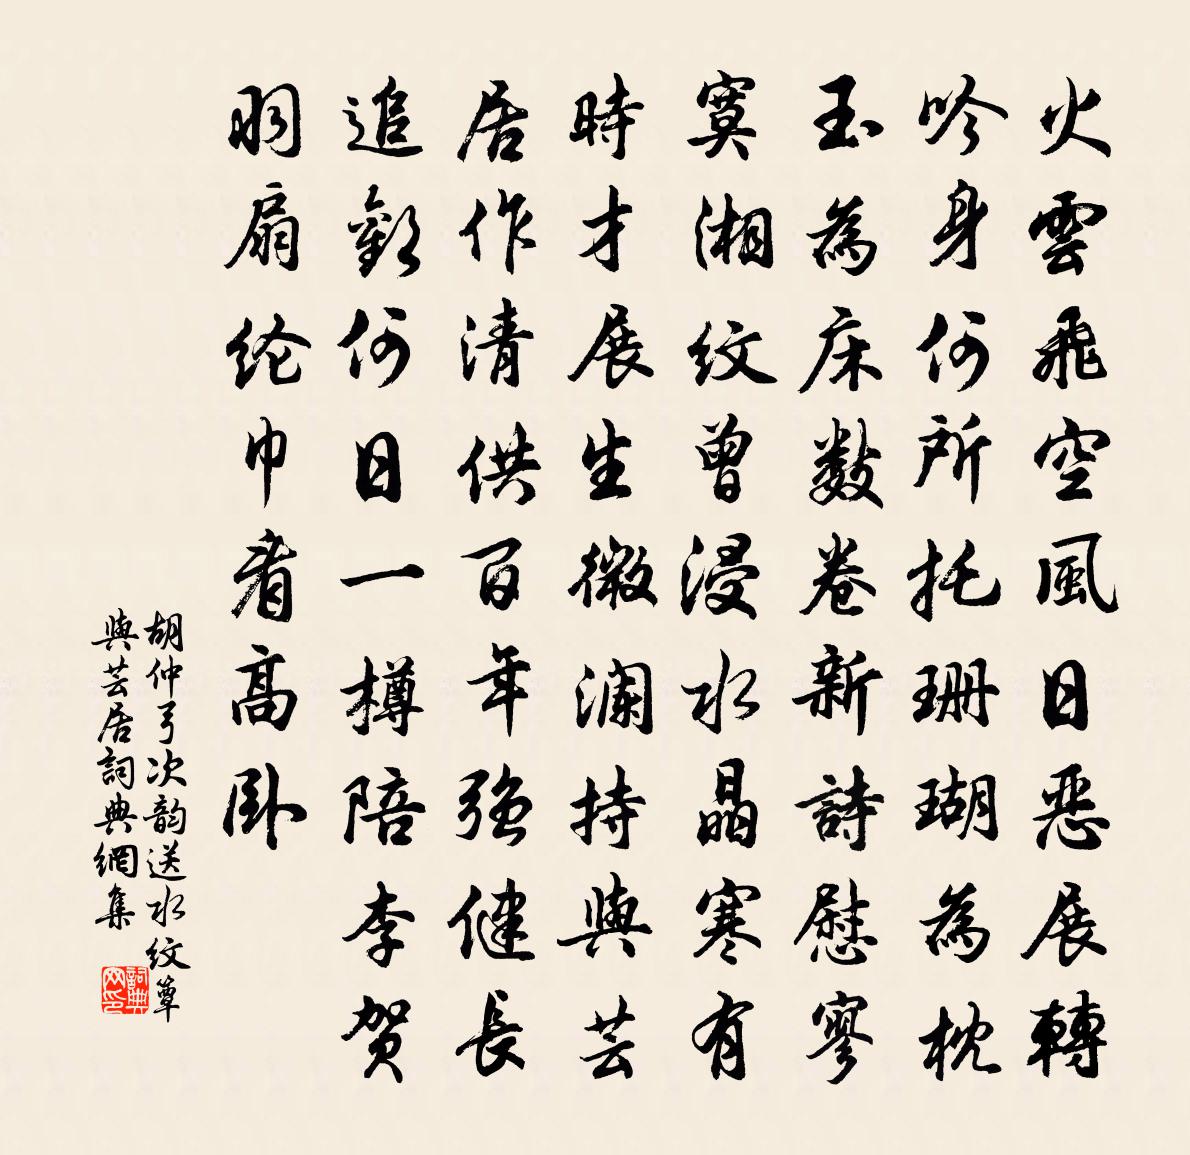 火雲飛空風日惡展轉
吟身何所托珊瑚為枕
玉為床數卷新詩慰寥
寞湘紋曾浸水晶寒有
時才展生微瀾持與芸
居作清供百年強健長
追歡何日一樽陪李賀
羽扇纶巾看高臥
胡仲弓次韵送水紋簟
與芸居詞典網集
詞典网印